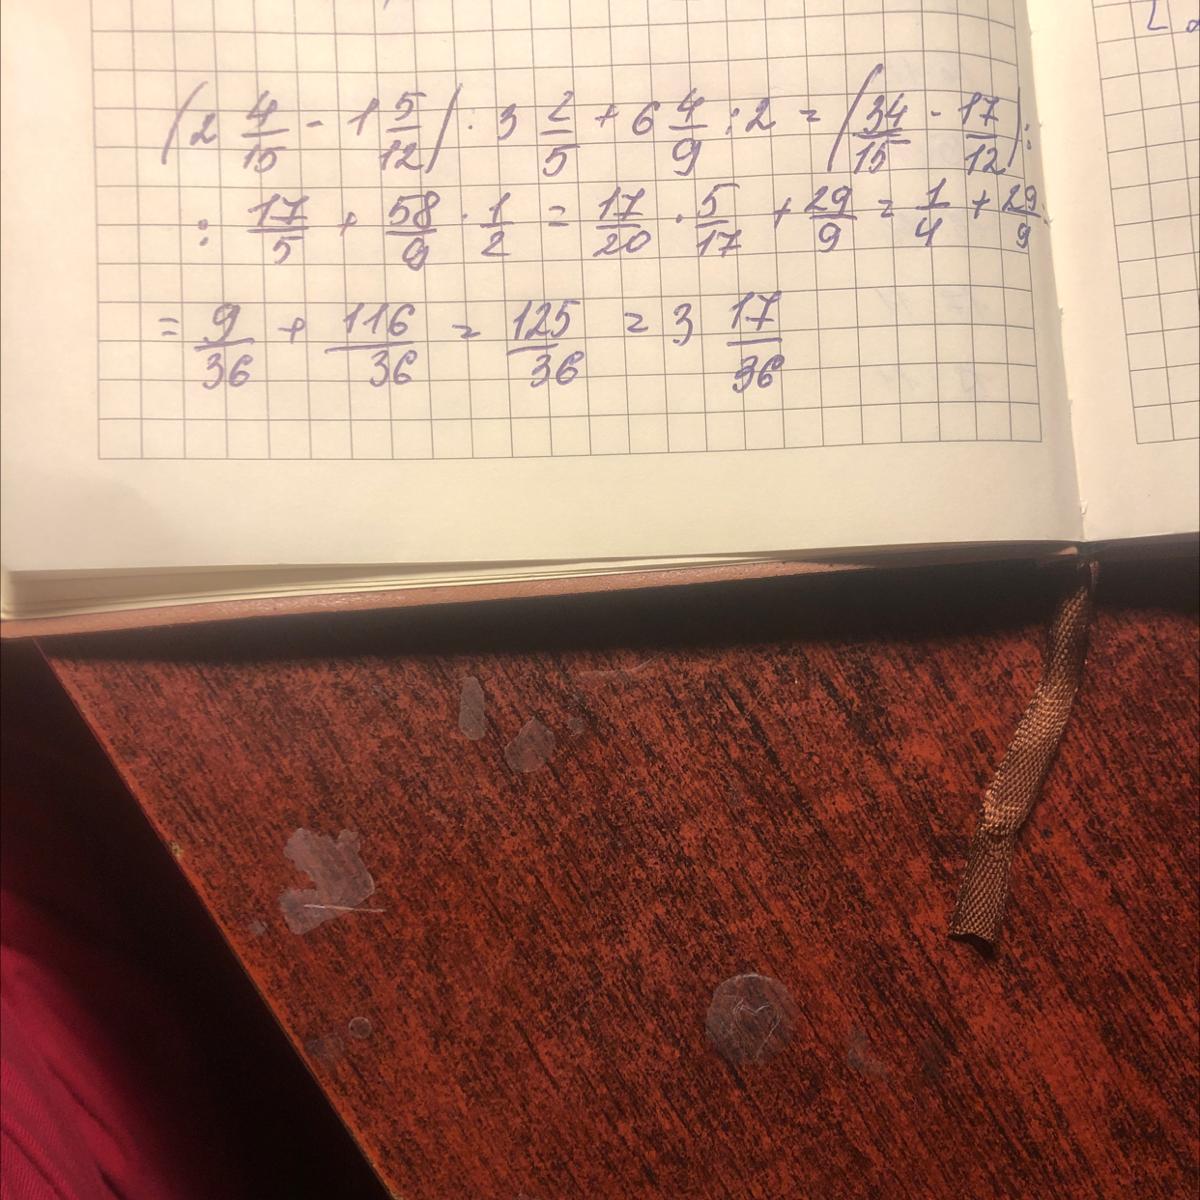 (2 4/15 - 1 5/12) : 3 2/5 + 6 4/9 : 2 = (34/15 - 17/12) :
: 17/5 + 58/9 · 1/2 = 17/20 · 5/17 + 29/9 = 1/4 + 29/9
= 9/36 + 116/36 = 125/36 = 3 17/36